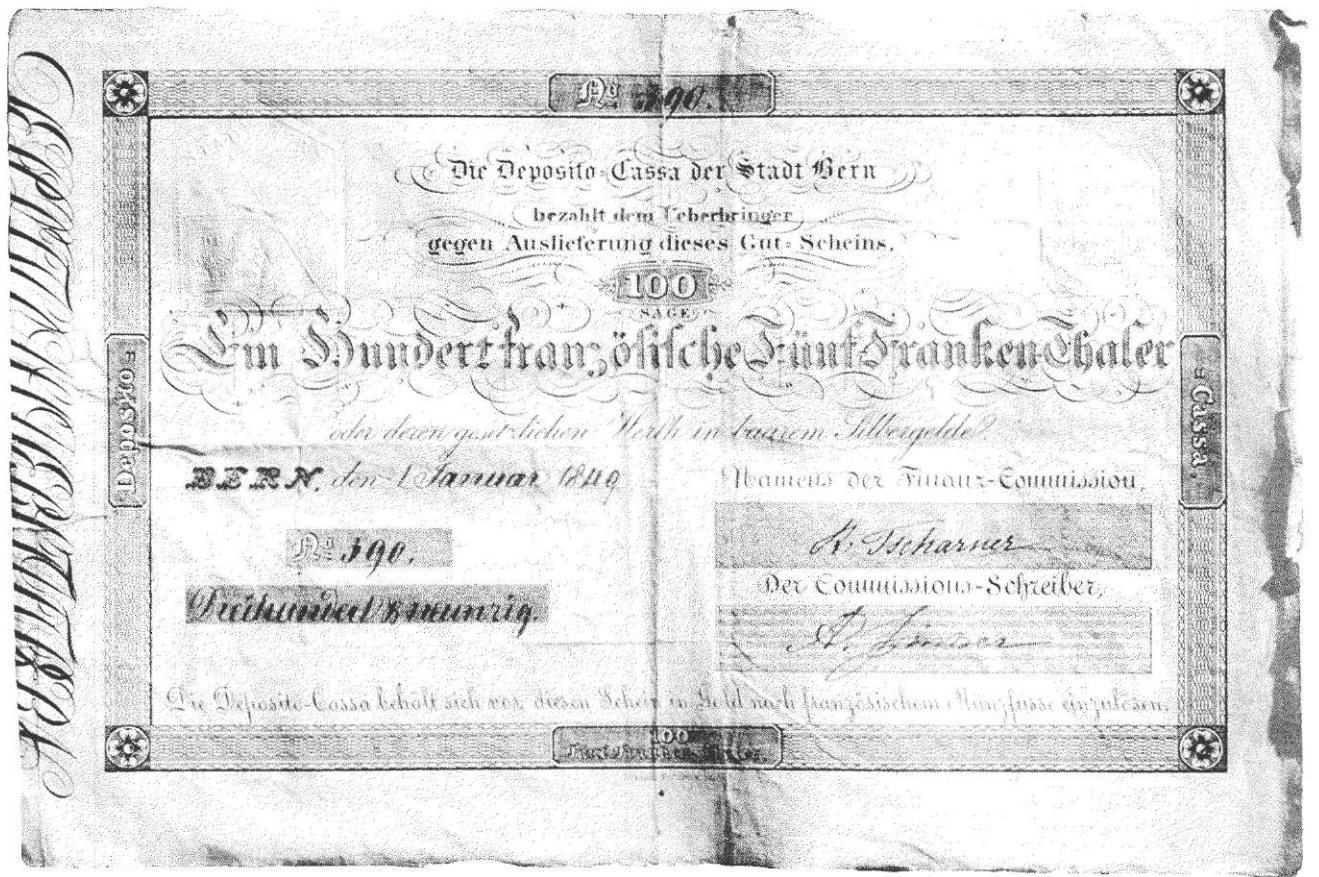 No 390.
Die Deposito-Cassa der Stadt Bern
bezahlt dem Ueberbringer
gegen Auslieferung dieses Gut-Scheins,
100
SAGE
Ein Hundert französische Fünf Franken Thaler
oder deren gesetzlichen Werth in baarem Silbergelde.
BERN, den 1 Januar 1849
Namens der Finanz-Commission,
No 390.
Tscharner
Der Commissions-Schreiber,
Dreihundert & neunzig.
Die Deposito-Cassa behält sich vor, diesen Schein in Gold nach französischem Münzfusse einzulösen.
100
Fünf Franken Thaler.
Deposito=
=Cassa,